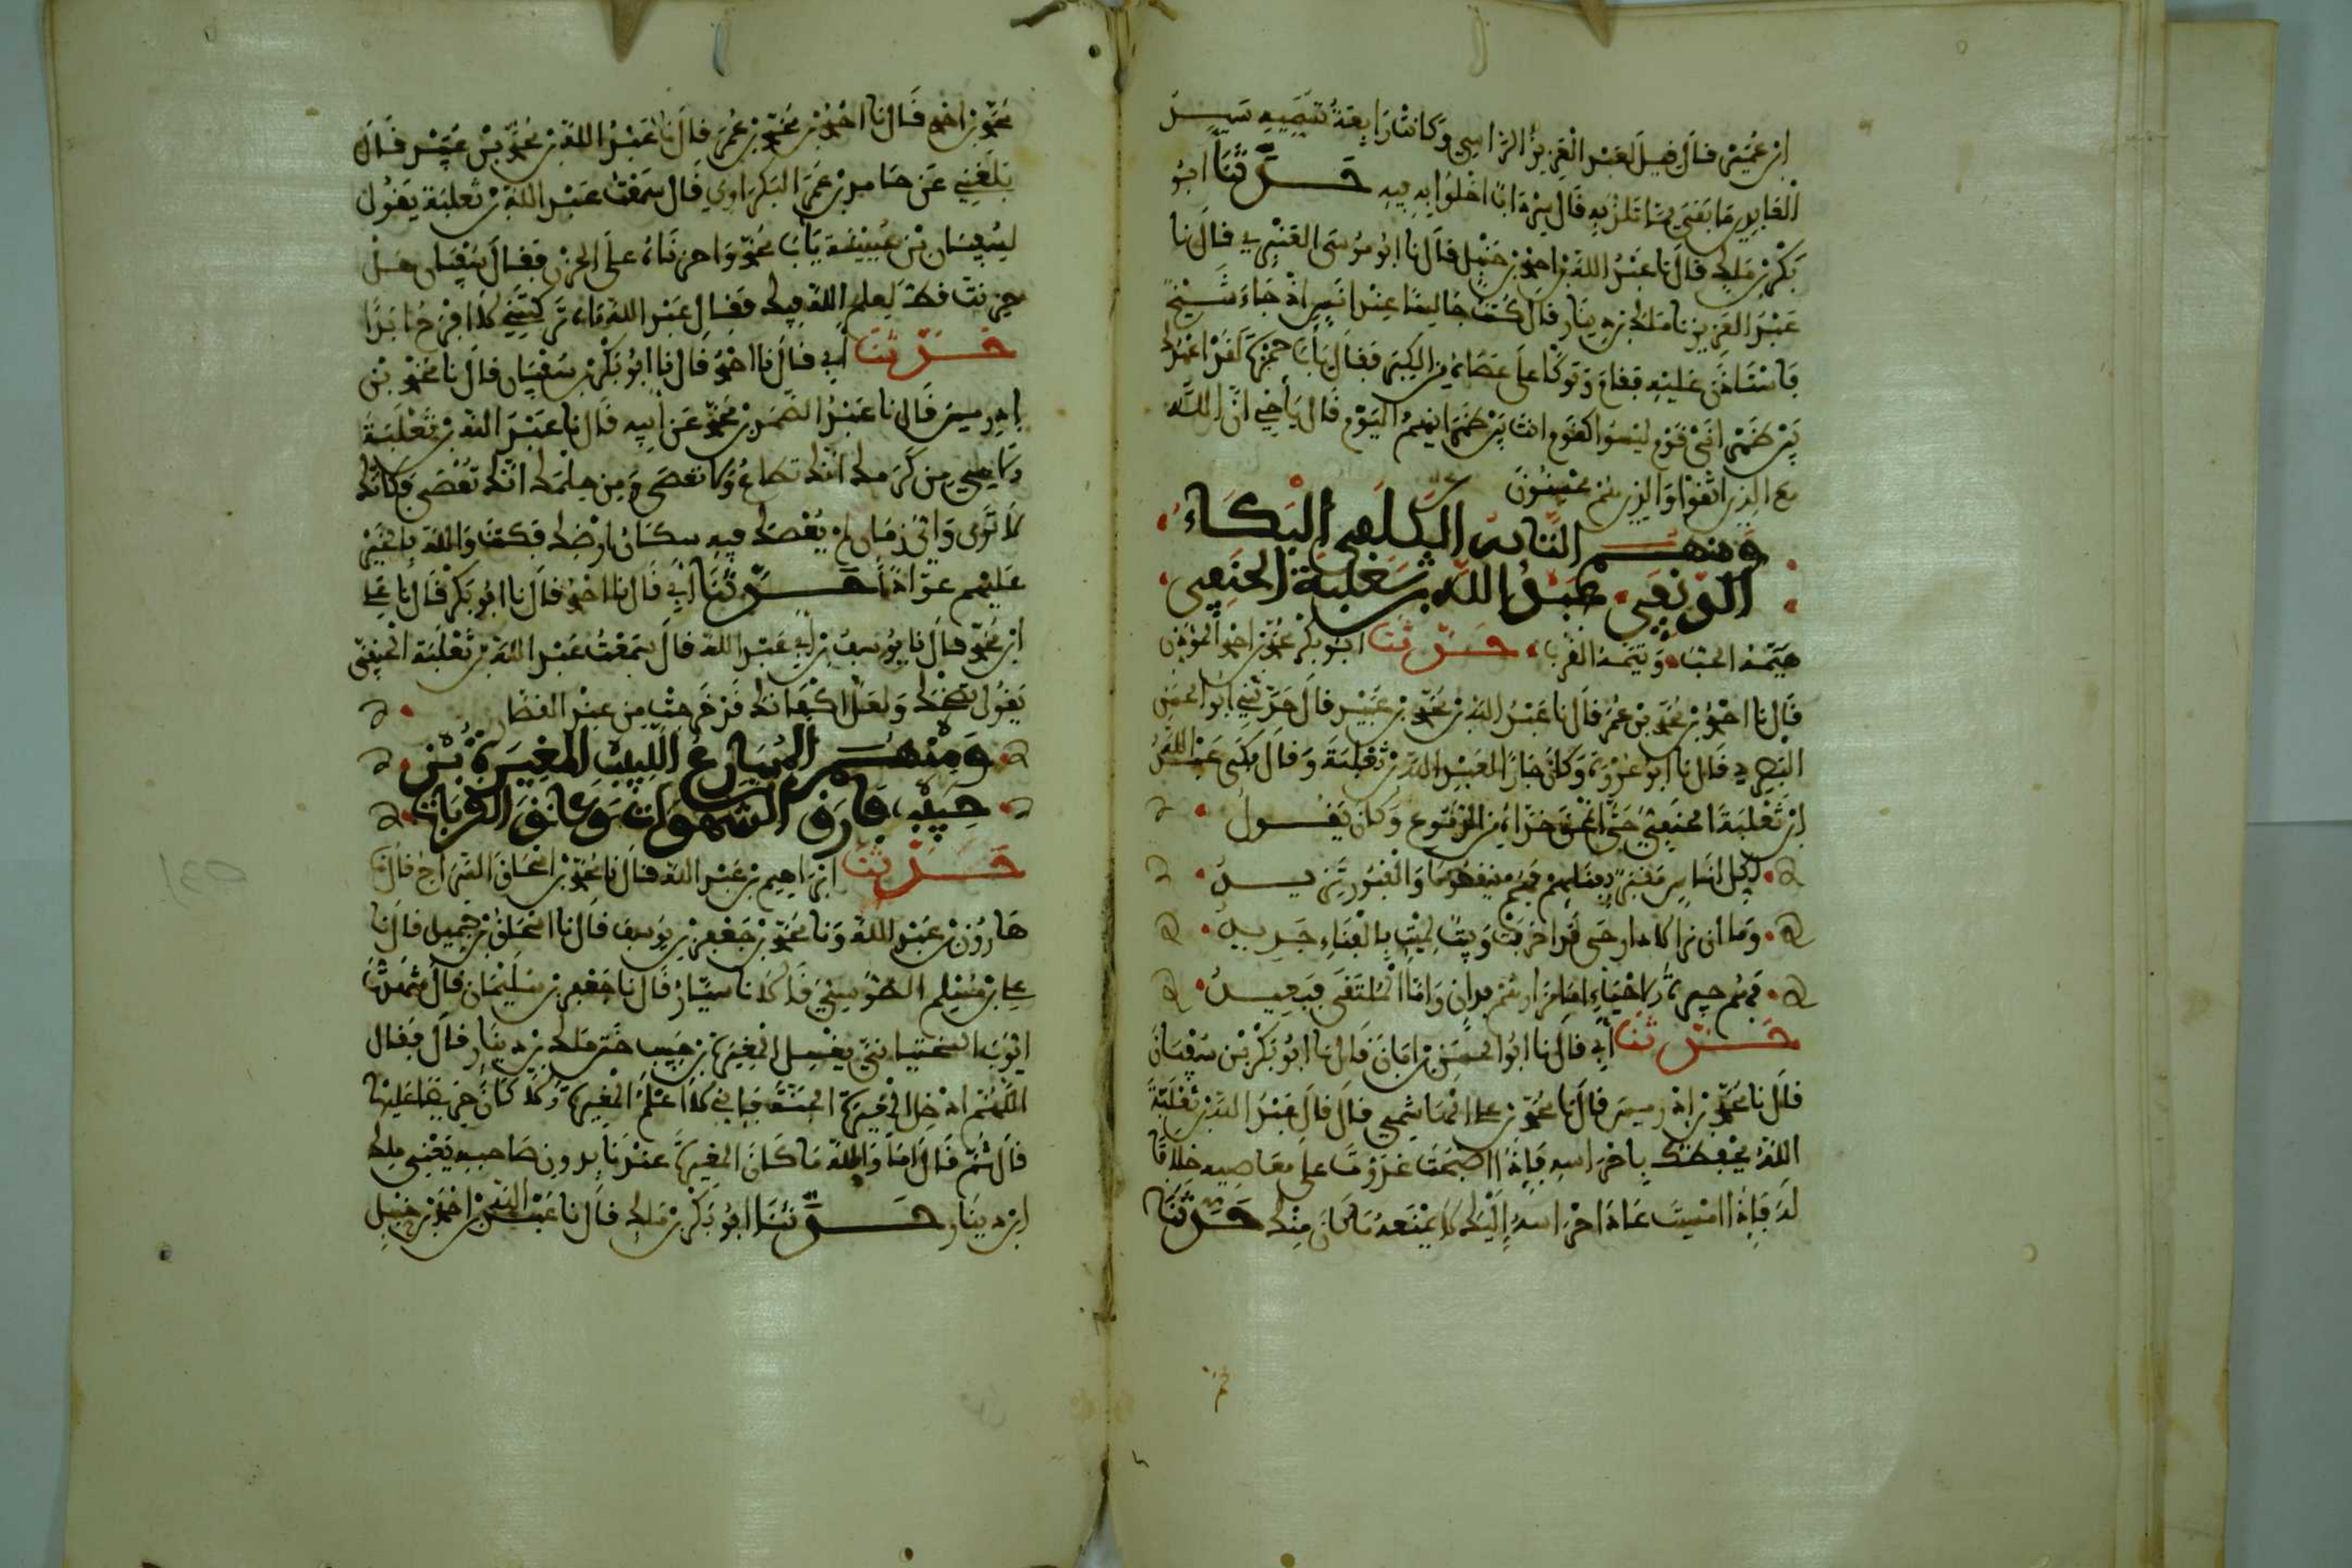 ابن عمير قال قيل لعبد العزيز الراسبي وكانت رابعة تسميه سيد
العابدين ما بقي مما تلذ به قال سرداب اخلوا به فيه حدثنا ابو
بكر بن ملك قال نا عبد الله بن احمد بن حنبل قال نا ابو موسى العنبري قال نا
عبد العزيز نا ملك بن دينار قال كنت جالسا عند انس اذ جاء شيخ
فاستاذن عليه فقام وتوكأ على عصاه من الكبر فقال يابا حمزة لقد اعهدك
بين ظهري قوم ليسوا كقوم انت بين ظهرانيهم اليوم قال يا أخي ان الله
مع الذين اتقوا والذين هم محسنون
ومنهم البكاء
عبد الله بن ثعلبة الحنفي
حدثنا ابو بكر محمد بن احمد المؤذن
قال نا احمد بن محمد بن عمر قال نا عبد الله بن محمد بن عبيد قال حدثني ابو الحسن
البصري قال نا ابو عروة وكان جارا لعبد الله بن ثعلبة وقال بكى عبد الله
ابن ثعلبة الحنفي حتى خداه من الدموع وكان يقول
لكل اناس مقبر بفنايهم فهم ينقصون والقبور تزيد
وما ان نرى دارا حي قد اخربت وبيت لميت بالفناء جديد
فهم جيرة الاحياء اما مزارهم فدان واما الملتقى فبعيد
حدثنا أبي قال نا ابو الحسن بن ابان قال نا ابو بكر بن سفيان
قال نا محمد بن ادريس قال نا محمد بن علي الهاشمي قال قال عبد الله بن ثعلبة
الله يحفظك باحراسه فاذا اصبحت غدوت على معاصيه خلافا
له فاذا امسيت عاد احراسه إليك لا يمنعه ما كان منك حدثنا
محمد بن احمد قال نا احمد بن محمد بن عمر قال نا عبد الله بن محمد بن عبيد قال
بلغني عن حامد بن عمر البكراوي قال سمعت عبد الله بن ثعلبة يقول
لسفيان بن عيينة يابا محمد واحزناه على الحزن فقال سفيان هل
حزنت قط لعلم الله فيك فقال عبد الله آه تركتني لا افرح ابدا
حدثنا أبي قال نا احمد قال نا ابو بكر بن سفيان قال نا محمد بن
ادريس قال نا عبد الصمد بن محمد عن أبيه قال نا عبد الله بن ثعلبة
الهي من كرمك انك تطاع ولا تعصى ومن حلمك انك تعصى وكانك
لا ترى واي زمان لم يعصك فيه سكان ارضك فكنت والله بالخير
عليهم عوادا حدثنا أبي قال نا احمد قال نا ابو بكر قال نا علي
ابن محمد قال نا يوسف بن أبي عبد الله قال سمعت عبد الله بن ثعلبة الحنفي
يقول تضحك ولعل اكفانك قد خرجت من عند القصار
ومنهم المسارع اللبيب المغيرة بن
حبيب فارق الشهوات وعانق القربات
حدثنا ابراهيم بن عبد الله قال نا محمد بن اسحاق السراج قال نا
هارون بن عبد الله ونا محمد بن جعفر بن يوسف قال نا اسحاق بن جميل قال نا
علي بن مسلم الطوسي قالا نا سيار قال نا جعفر بن سليمان قال شهدت
ايوب السختياني يغسل المغيرة بن حبيب ختن ملك بن دينار قال فقال
اللهم ادخل المغيرة الجنة فاني لا اعلم المغيرة الا كان حريصا عليها
قال ثم قال اما والله ما كان المغيرة عندنا بدون صاحبه يعني ملك
ابن دينار حدثنا ابو بكر بن ملك قال نا عبد الله بن احمد بن حنبل